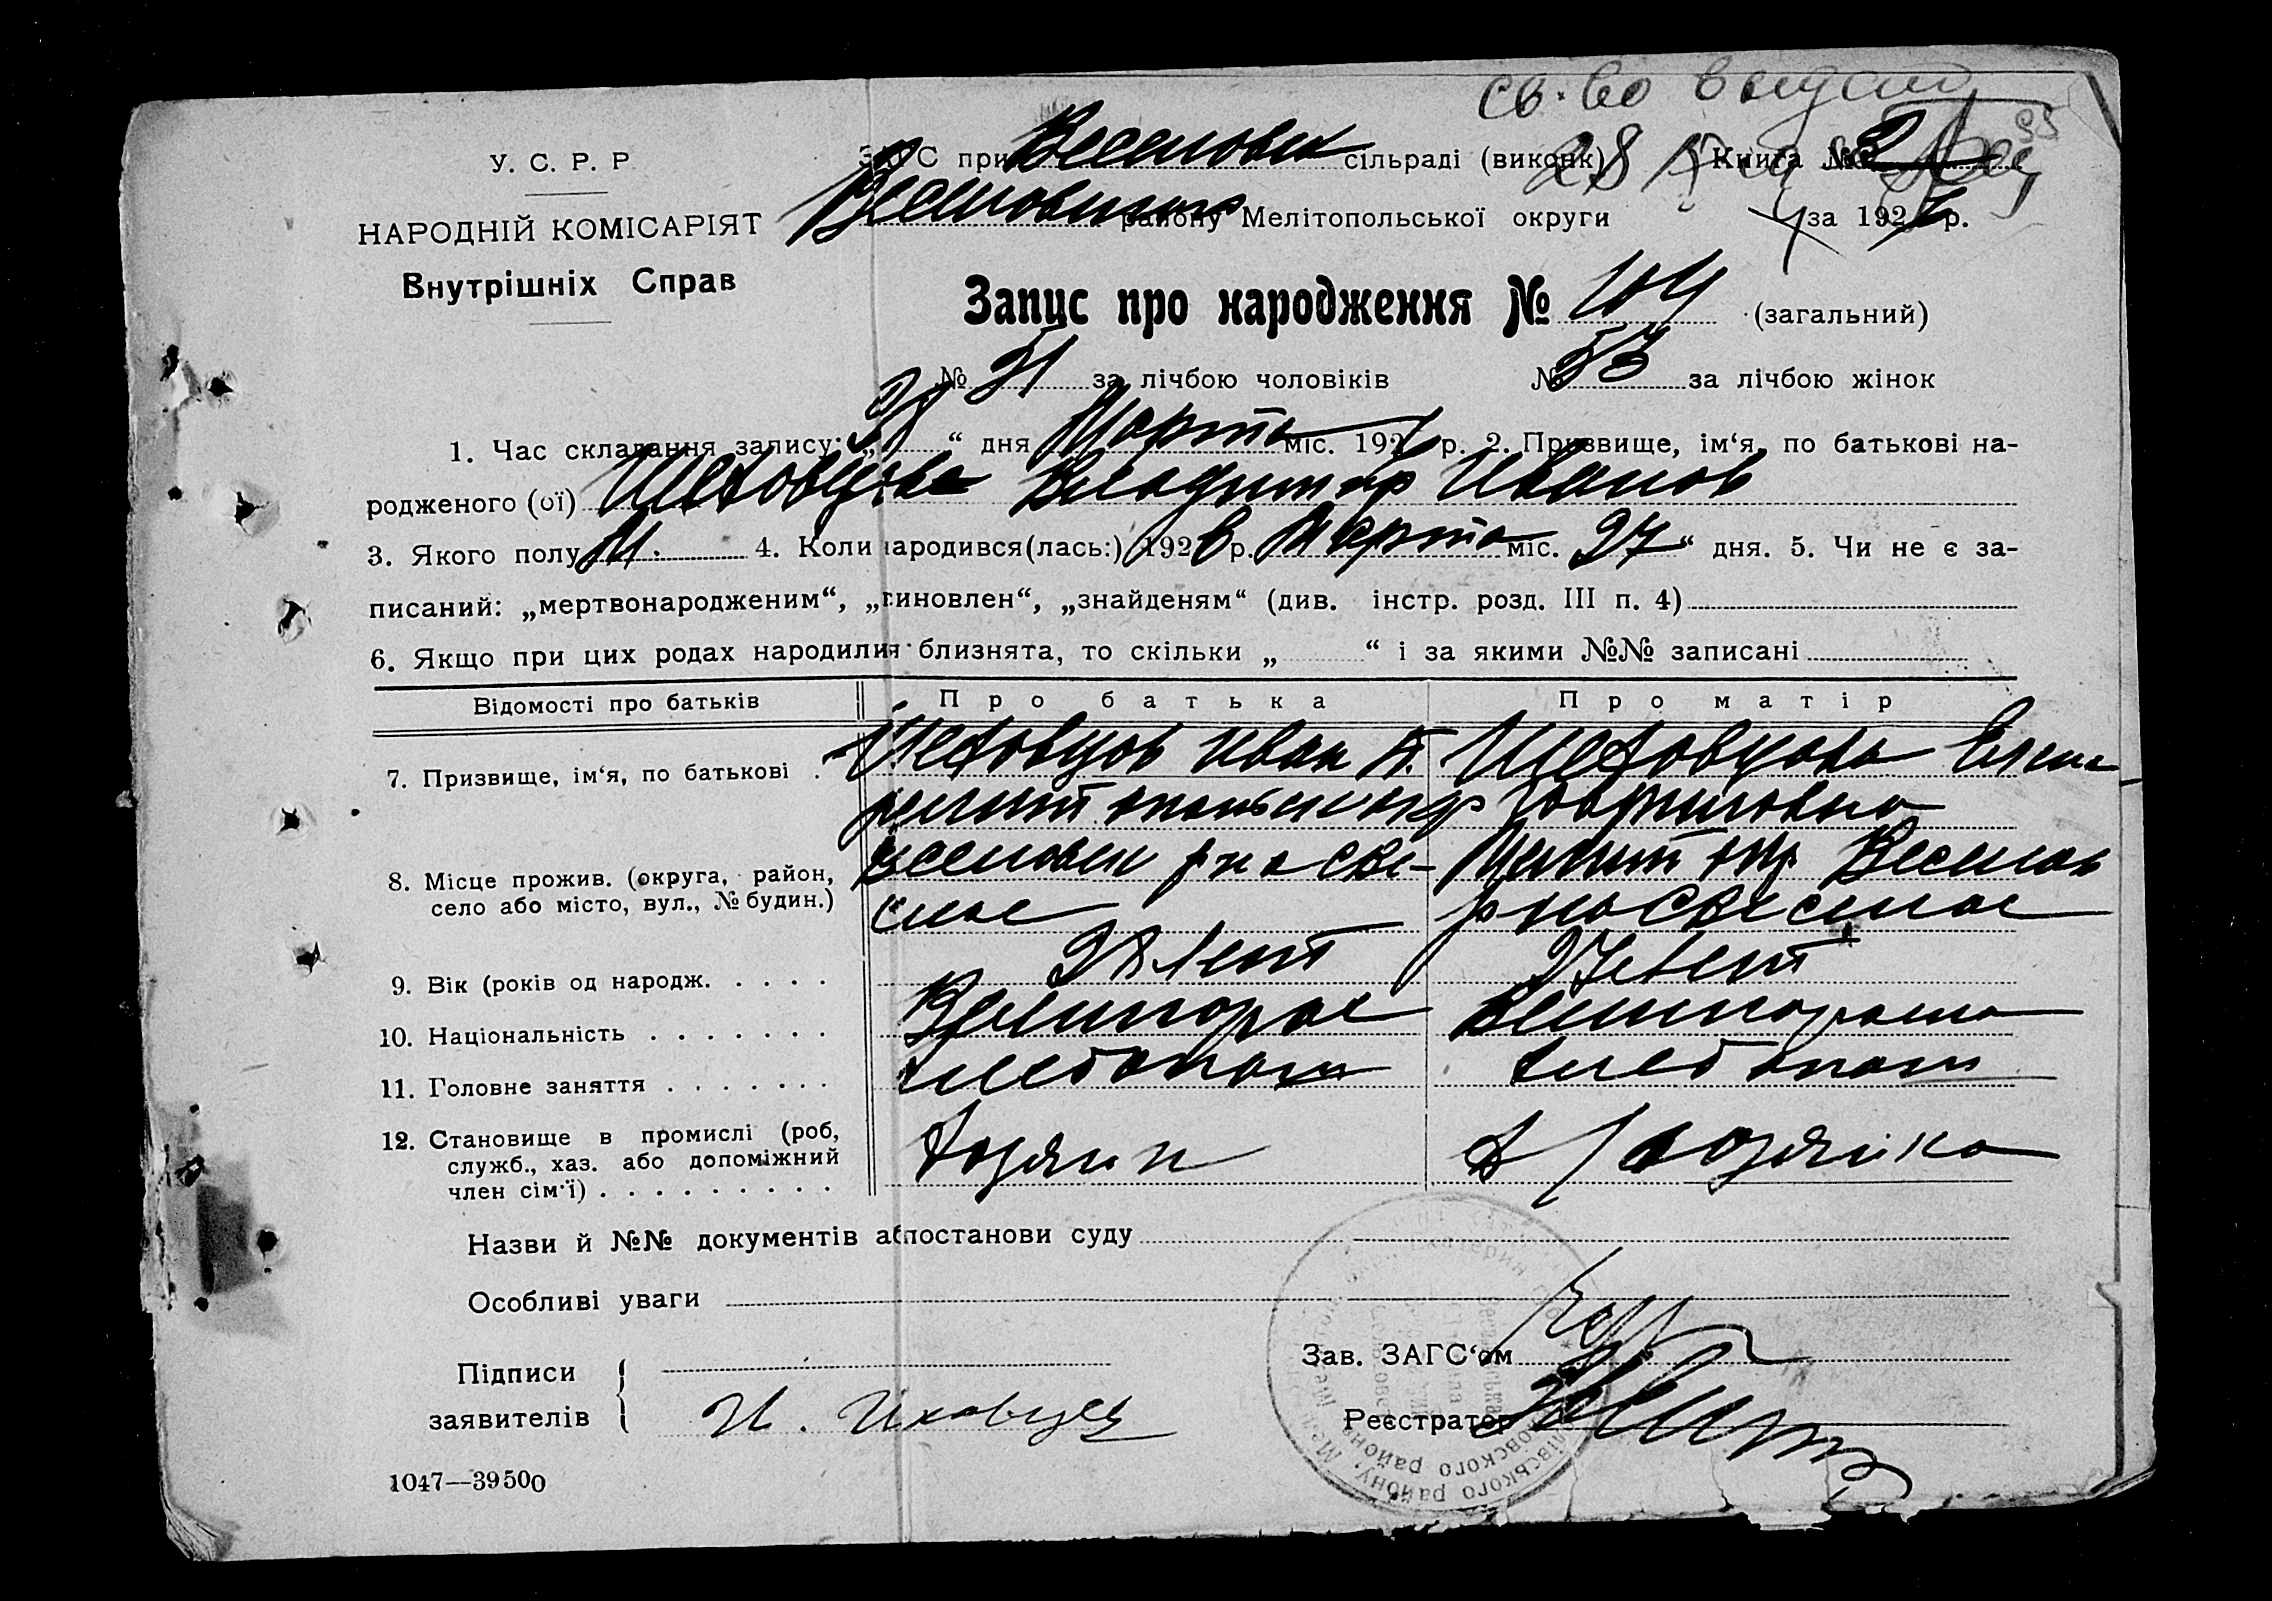 св-во выдан
У. С. Р. Р
ЗАГС при Веселовск сільраді (виконк) Книга № 2
Веселовского району Мелітопольської округи за 1926 р.
НАРОДНІЙ КОМІСАРІЯТ
Внутрішніх Справ
Запис про народження № 104 (загальний)
№ 51 за лічбою чоловіків № 53 за лічбою жінок
1. Час складання запису: „31“ дня Марта міс. 1926 р. 2. Призвище, ім‘я, по батькові на-
родженого (ої) Шеховцова Владимир Иванов
3. Якого полу М. 4. Коли народився(лась:) 1926 р. Марта міс. 27“ дня. 5. Чи не є за-
писаний: „мертвонародженим“, „ . иновлен“, „знайденям“ (див. інстр. розд. III п. 4)
6. Якщо при цих родах народилия близнята, то скільки „ “ і за якими №№ записані
Відомості про батьків Про батька Про матір
7. Призвище, ім‘я, по батькові . Шеховцов Иван Шеховцова
Гавриловна
8. Місце прожив. (округа, район, Веселовск р на Весе- Мелитоп окр Веселов
село або місто, вул., № будин.) лое р на С Веселое
9. Вік (років од народж. . . . . 28 лет 27 лет
10. Національність . . . . . . . Великорос Великороска
11. Головне заняття . . . . . . . хлебопаш хлебопаш
12. Становище в промислі (роб, Хозяин Хозяйка
служб., хаз. або допоміжний
член сім‘ї) . . . . . . . . .
Назви й №№ документів а постанови суду
Особливі уваги
Підписи Зав. ЗАГС‘ом
заявителів И. Шховцев Реєстратор
1047—39500